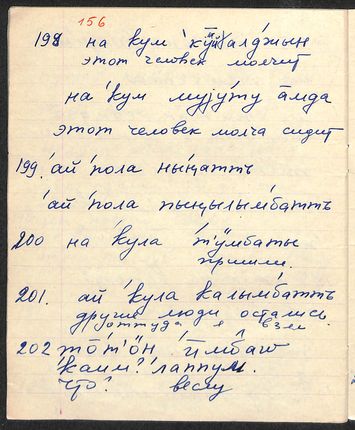 156
198 на ʼкум ʼкӱ̄йалд́жын
этот человек молчит
на ʼкум муjýту а̄мда
этот человек молча сидит
199. ʼай ʼпола ныӊаттъ
ʼай ʼпола пыӊылы́мбаттъ
200 на ʼкула ʼтӱмбаты
пришли.
201. ай ʼкула калымба́ттъ
другие люди остались.
оттуда я взял
202 то̄ʼтӧ̄н ʼӣмбаӷ
ʼкаим? ʼлаппум.
что? весну